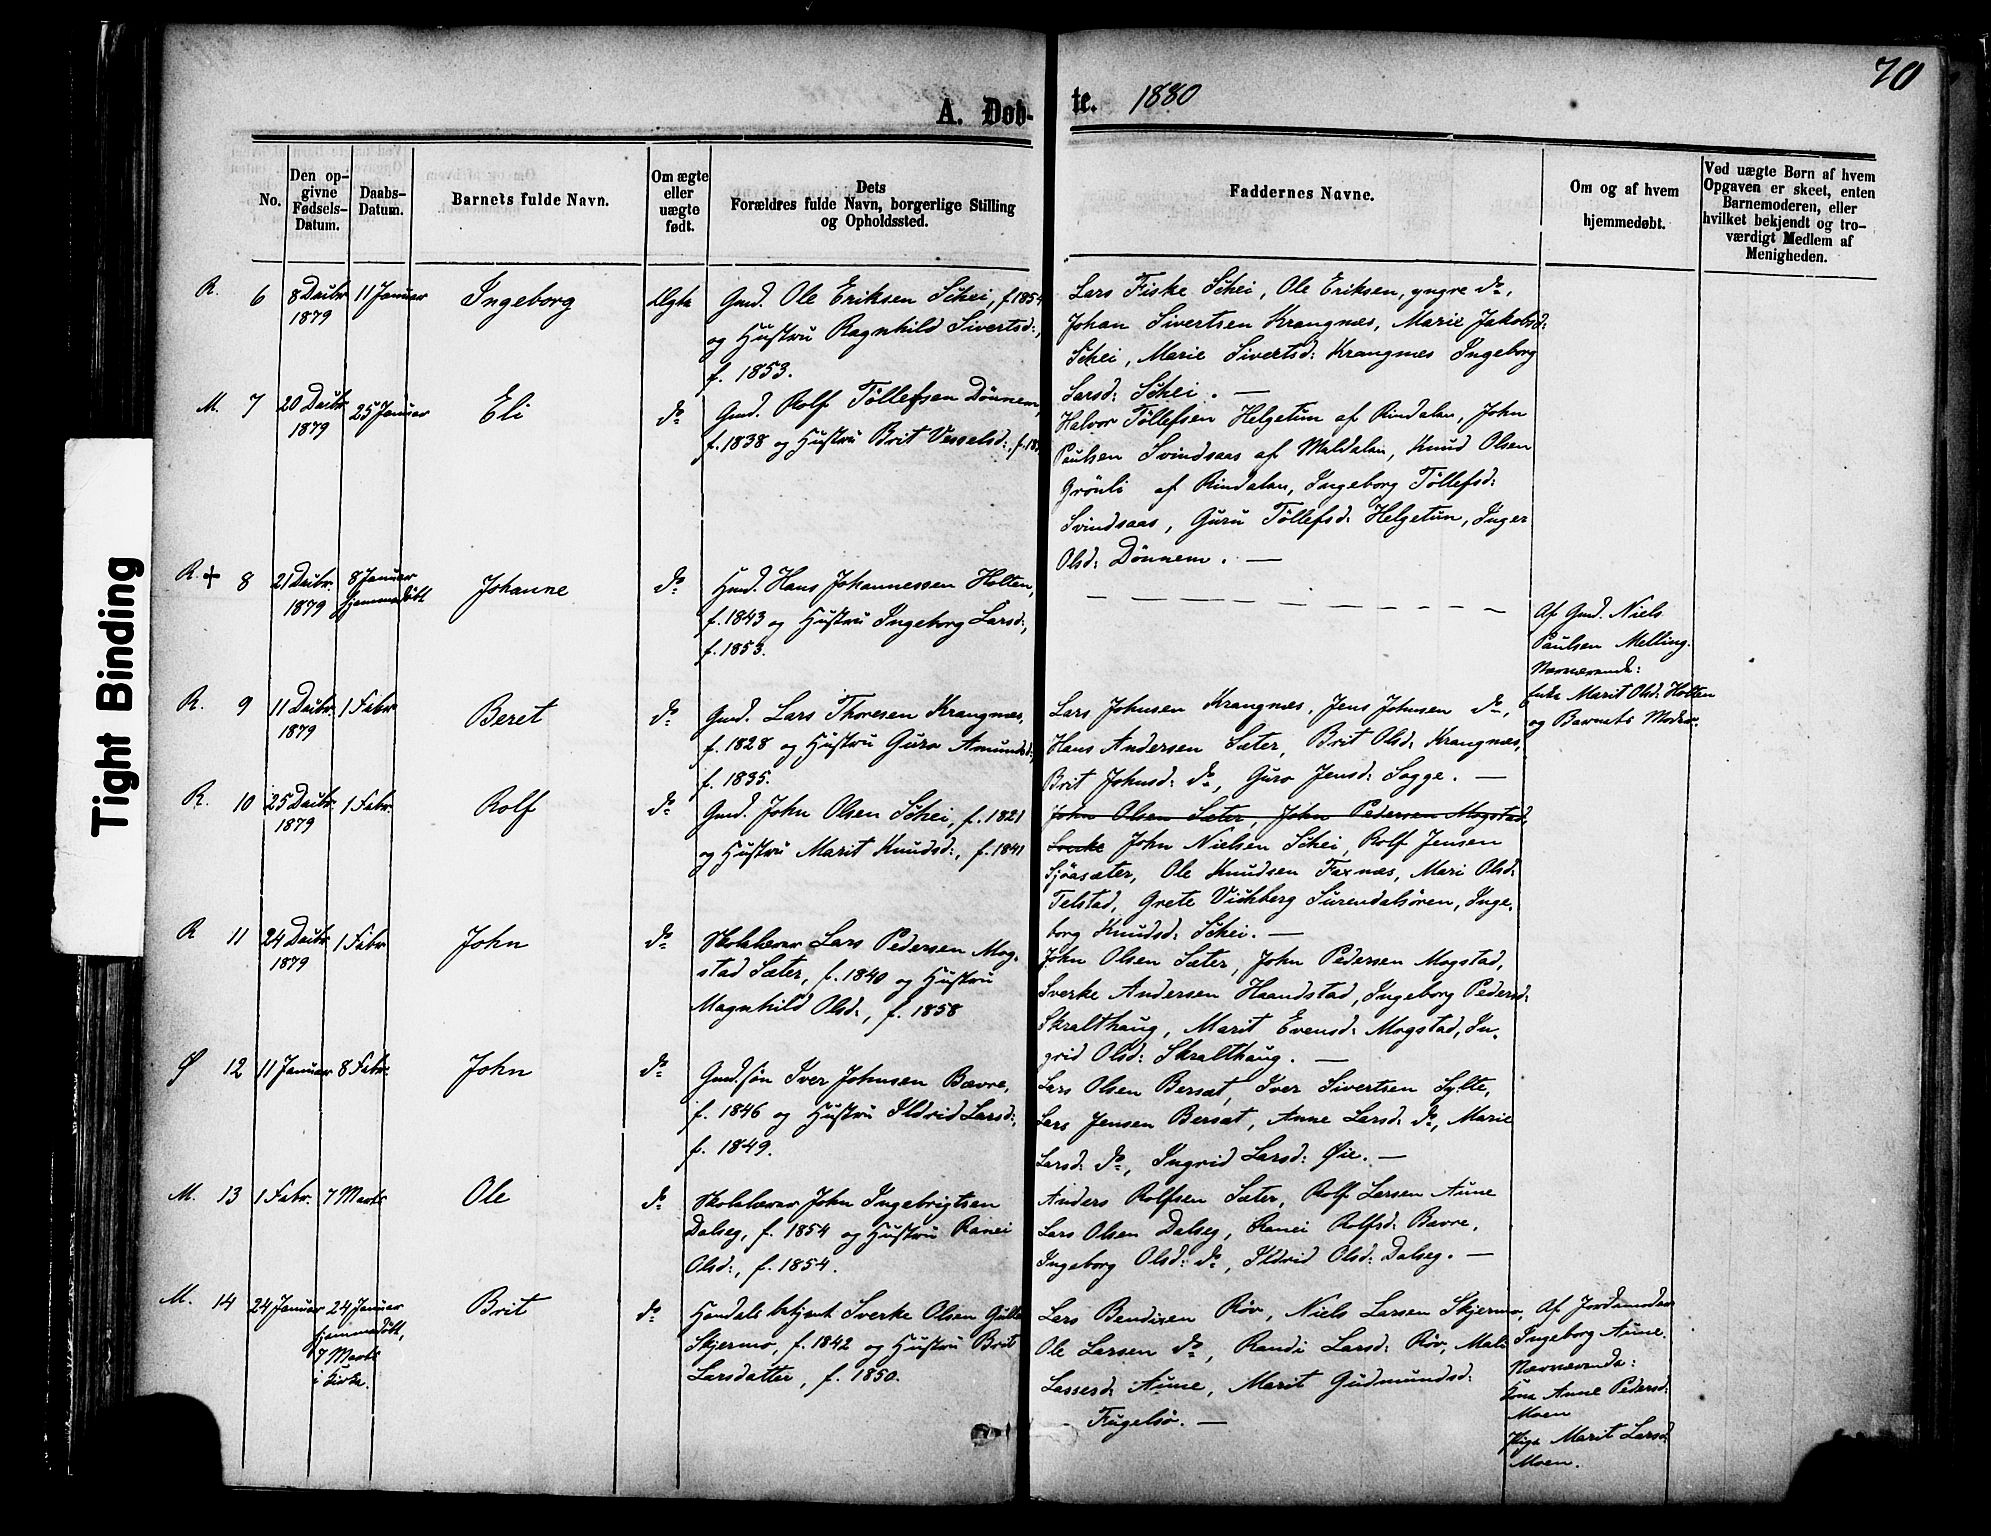 70
A. Døb-
te. 1880
No.
Den op-
givne
Fødsels-
Datum.
Daabs-
Datum.
Barnets fulde Navn.
Om ægte
eller
uægte
født.
Dets
Forældres fulde Navn, borgerlige Stilling
og Opholdssted.
Faddernes Navne.
Om og af hvem
hjemmedøbt.
Ved uægte Børn af hvem
Opgaven er skeet, enten
Barnemoderen, eller
hvilket bekjendt og tro-
værdigt Medlem af
Menigheden.
R. 6 8 Decbr 1879 11 Januar Ingeborg Ægte
Gmd. Ole Eriksen Schei, f. 1854
og Hustru Ragnhild Sivertsd:,
f. 1853.
Lars Fiske Schei, Ole Eriksen, yngre do,
Johan Sivertsen Krangnæs, Marie Jakobsd:
Schei, Marie Sivertsd: Krangnæs Ingeborg
Larsd: Schei. —
M. 7 20 Decbr 1879 25 Januar Eli do
Gmd. Rolf Töllefsen Dönnem,
f. 1838 og Hustru Brit Vesselsd:, f. 18
Halvor Töllefsen Helgetun af Rindalen, John
Paulsen Svindsaas af Maldalen, Knud Olsen
Grönli af Rindalen, Ingeborg Töllefsd:
Svindsaas, Guru Töllefsd: Helgetun, Inger
Olsd: Dönnem. —
R. + 8 21 Decbr. 1879 8 Januar hjemmedöbt Johanne do
Hmd. Hans Johannessen Holten,
f. 1843 og Hustru Ingeborg Larsd:,
f. 1853.
Af Gmd. Niels
Paulsen Melling.
Nærværende:
Enke Marit Olsd: Holten
og Barnets Moder.
R. 9 11 Decbr. 1879 1 Febr. Beret do
Gmd. Lars Thoresen Krangnæs,
f. 1828 og Hustru Guro Amundsd:,
f. 1835.
Lars Johnsen Krangnæs, Jens Johnsen do,
Hans Andersen Sæter, Brit Olsd: Krangnæs,
Brit Johnsd: do, Guro Jensd: Sogge. —
R. 10 25 Decbr. 1879 1 Febr. Rolf do
Gmd. John Olsen Schei, f. 1821
og Hustru Marit Knudsd:, f. 1841
John Olsen Sæter, John Pedersen Mogstad,
Sverke John Nielsen Schei, Rolf Jensen
Sjöasæter, Ole Knudsen Faxnæs, Mari Olsd:
Telstad, Grete Vichberg Surendalsören, Inge-
borg Knudsd: Schei. —
R 11 24 Decbr. 1879 1 Febr John do
Skolelærer Lars Pedersen Mog-
stad Sæter, f. 1840 og Hustru
Magnhild Olsd:, f. 1858
John Olsen Sæter, John Pedersen Mogstad,
Sverke Andersen Haandstad, Ingeborg Pedersd:
Skralthaug, Marit Evensd: Mogstad, In-
grid Olsd: Skralthaug. —
Ø 12 11 Januar 8 Febr. John do
Gmd.sön Iver Johnsen Bævre,
f. 1846 og Hustru Ildrid Larsd:,
f. 1849.
Lars Olsen Bersæt, Iver Sivertsen Sylte,
Lars Jensen Bersæt, Anne Larsd: do, Marie
Larsd: do, Ingrid Larsd: Øie. —
M. 13 1 Febr. 7 Marts Ole do
Skolelærer John Ingebrigtsen
Dalseg, f. 1854 og Hustru Ranei
Olsd:, f. 1854.
Anders Rolfsen Sæter, Rolf Larsen Aune
Lars Olsen Dalseg, Ranei Rolfsd: Bævre,
Ingeborg Olsd: do, Ildrid Olsd: Dalseg. —
M. 14 24 Januar 24 Januar hjemmedöbt, 7 Marts i Kirke. Brit do
Handelsbetjent Sverke Olsen Gulla
Skjermo, f. 1842 og Hustru Brit
Larsdatter, f. 1850.
Lars Bendixen Röv, Niels Larsen Skjermo,
Ole Larsen do, Randi Larsd: Röv, Mali
Lassesd: Aune, Marit Gudmundsd:
Fugelsö. —
Af Jordemoder
Ingeborg Aune.
Nærværende:
Kone Anne Pedersd:
Moen
Pige Marit Larsd:
Moen.
Tight Binding